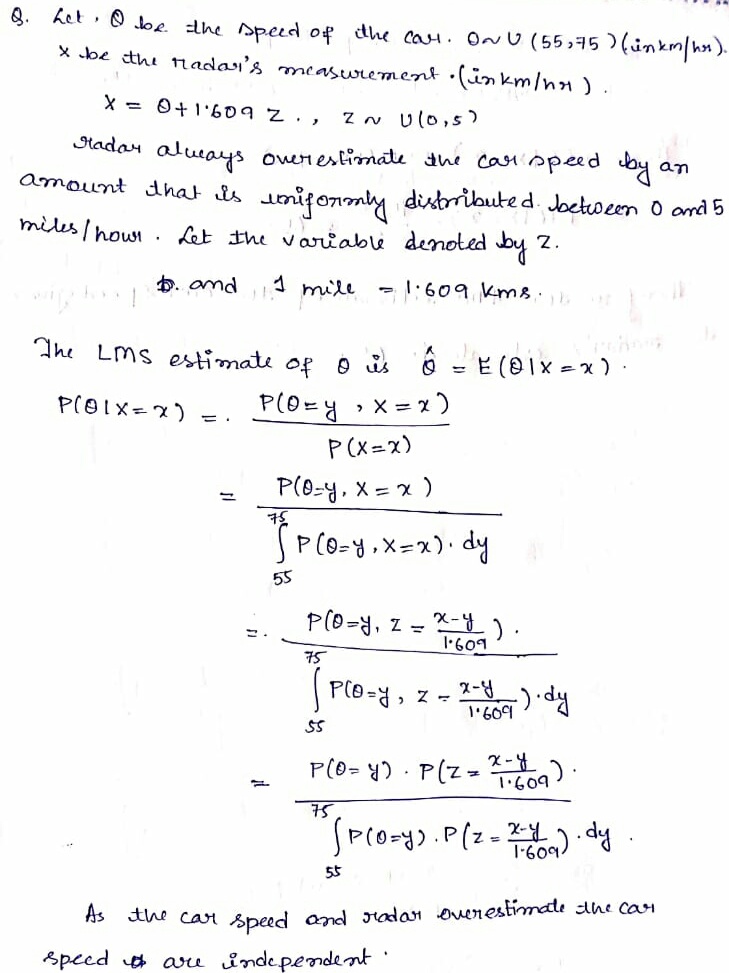 Q. Let, θ be the speed of the car. θ~U(55,75)(in km/hr).
x be the radar's measurement.(in km/hr).
X = θ+1.609 Z., Z ~ U(0,5)
radar always overestimate the car speed by an
amount that is uniformly distributed between 0 and 5
miles/hour. Let the variable denoted by Z.
and 1 mile = 1.609 kms.
The LMS estimate of θ is θ̂ = E(θ|X=x).
P(θ|X=x) = P(θ=y, X=x) / P(X=x)
= P(θ=y, X=x) / ∫₅₅⁷⁵ P(θ=y, X=x). dy
= P(θ=y, Z = (x-y)/1.609). / ∫₅₅⁷⁵ P(θ=y, Z = (x-y)/1.609).dy
= P(θ=y). P(Z = (x-y)/1.609). / ∫₅₅⁷⁵ P(θ=y). P(Z = (x-y)/1.609).dy.
As the car speed and radar overestimate the car
speed are independent.